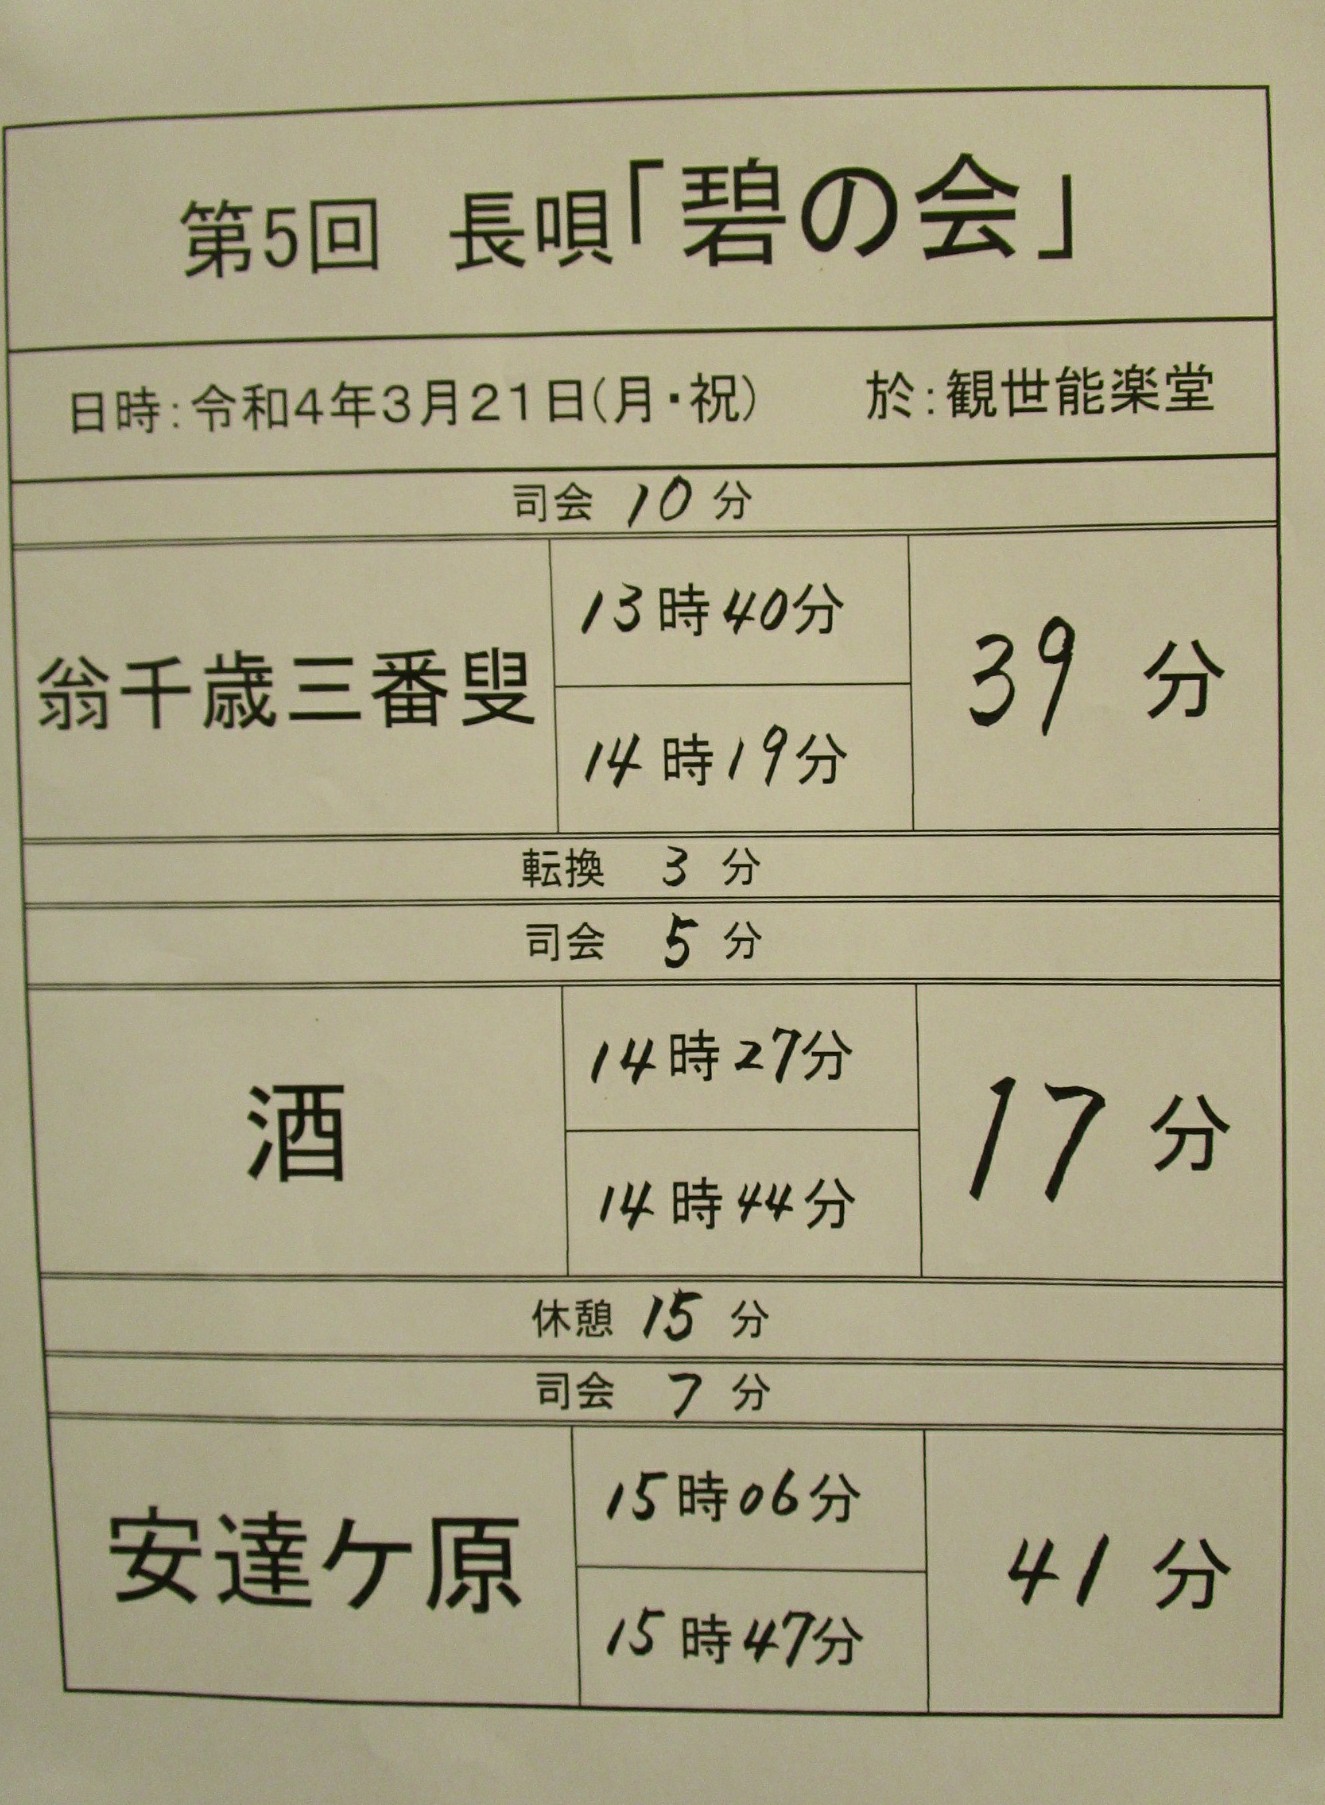 第5回 長唄「碧の会」
日時:令和4年3月21日(月・祝) 於:観世能楽堂
司会 10 分
翁千歳三番叟
13時40分
14時19分
39 分
転換 3 分
司会 5 分
酒
14時27分
14時44分
17 分
休憩 15 分
司会 7 分
安達ケ原
15時06分
15時47分
41 分